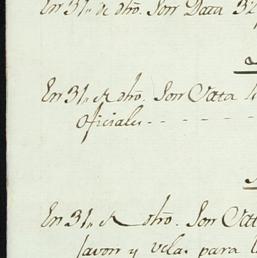 En 31,, de dho. Son Data 32
En 31,, de dho. Son Data 4
oficiales
En 31,, de dho. Son Dat
Javon y velas para l